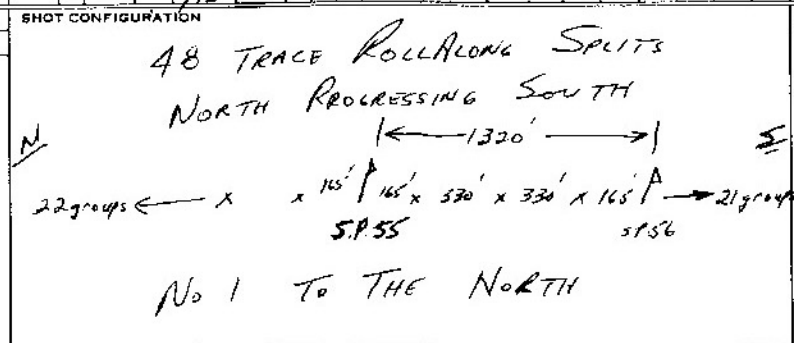 SHOT CONFIGURATION
48 TRACE ROLLALONG SPLITS
NORTH PROGRESSING SOUTH
N |← 1320' →| S
22 groups ← x x 165' 165' x 330' x 330' x 165' → 21 groups
S.P. 55 SP 56
No 1 To THE NORTH